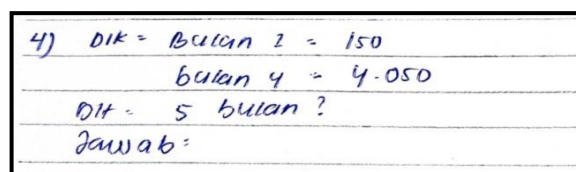 4) DIK = Bulan 1 = 150
bulan 4 = 4.050
DIT = 5 bulan ?
Jawab =